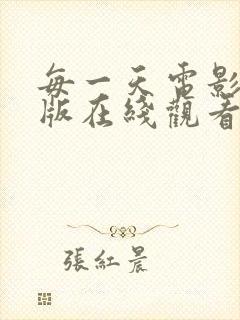 每一天電影
版在綫觀看
張紅晨